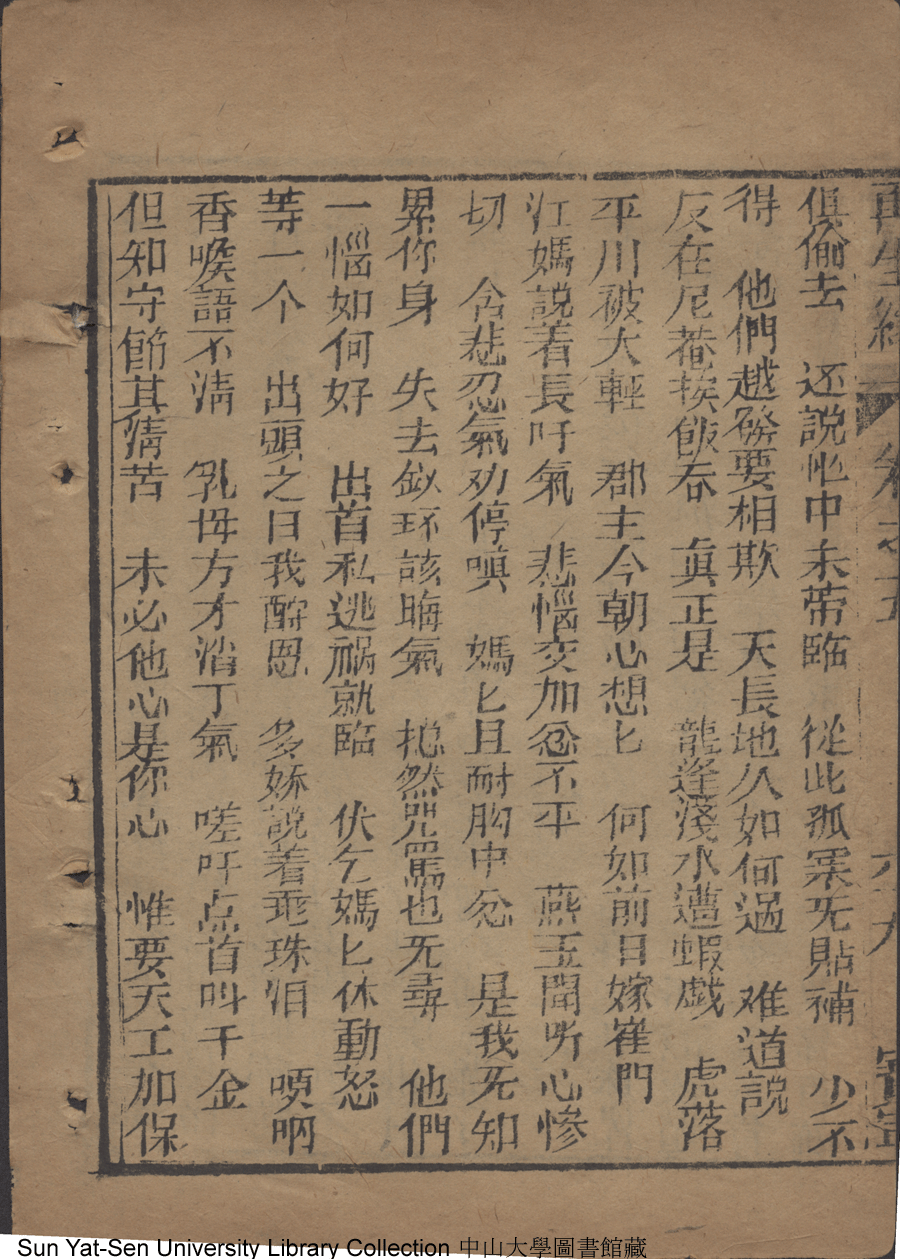 再生緣 卷之五 六九
俱偷去　还說牠中未帶臨　從此孤窮旡貼補　少不
得　他們越發要相欺　天長地久如何過　难道說
反在尼菴挨飯吞　真正是　龍逢淺水遭蝦戯　虎落
平川被犬輕　郡主今朝心想匕　何如前日嫁崔門
江媽說着長吁氣　悲惱交加忿不平　燕玉聞听心慘
切　含悲忍氣劝停嗔　媽匕且耐胸中忿　是我旡知
累你身　失去釵环該晦氣　揔然咒罵也旡尋　他們
一惱如何好　出首私逃禍就臨　伏乞媽匕休動怒
等一个　出頭之日我酧恩　多娇說着垂珠泪　哽咽
香喉語不清　乳母方才消了氣　嗟吁点首叫千金
但知守節其清苦　未必他心是你心　惟要天工加保
Sun Yat-Sen University Library Collection 中山大學圖書館藏